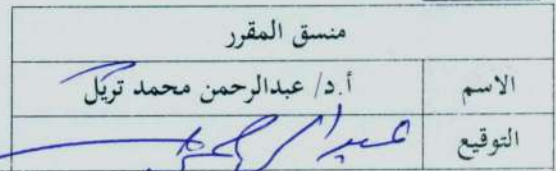 منسق المقرر
الاسم أ.د/ عبدالرحمن محمد تريل
التوقيع عبدالرحمن